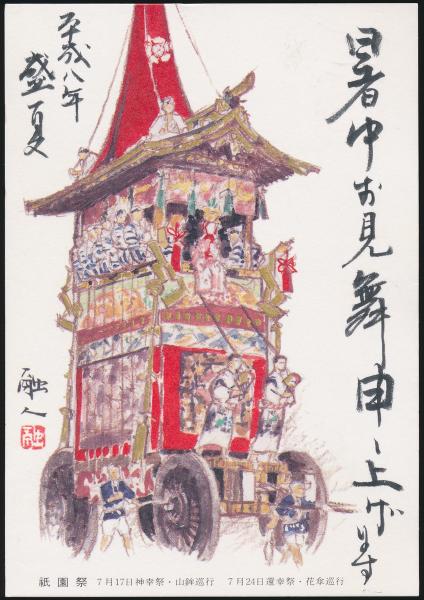 暑中お見舞申し上げます
平成八年
盛夏
融人
融
祇園祭 7月17日神幸祭・山鉾巡行 7月24日還幸祭・花傘巡行